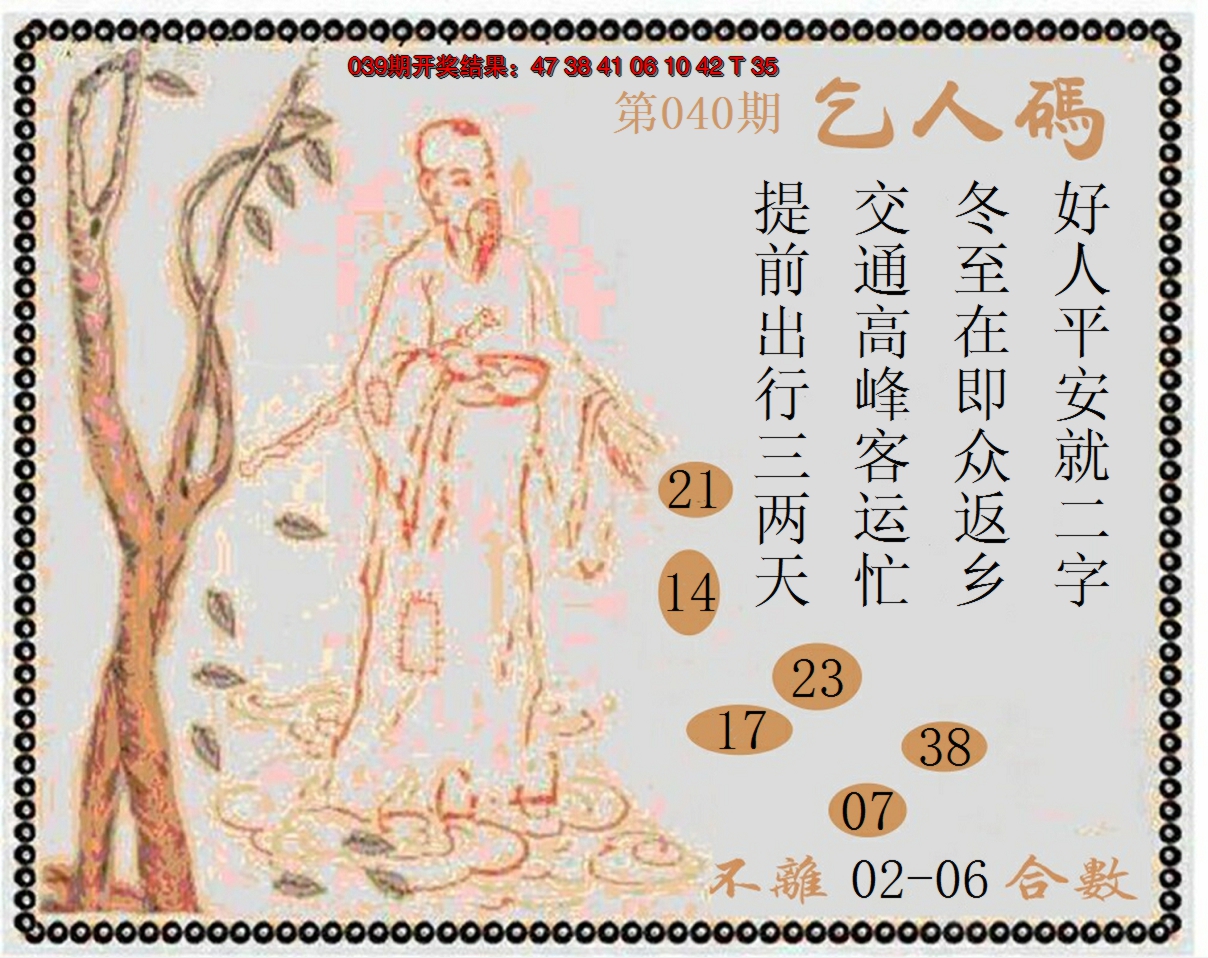 039期开奖结果：47 38 41 06 10 42 T 35
第040期 乞人碼
好人平安就二字
冬至在即众返乡
交通高峰客运忙
提前出行三两天
21
14
23
17
38
07
不離 02-06 合數